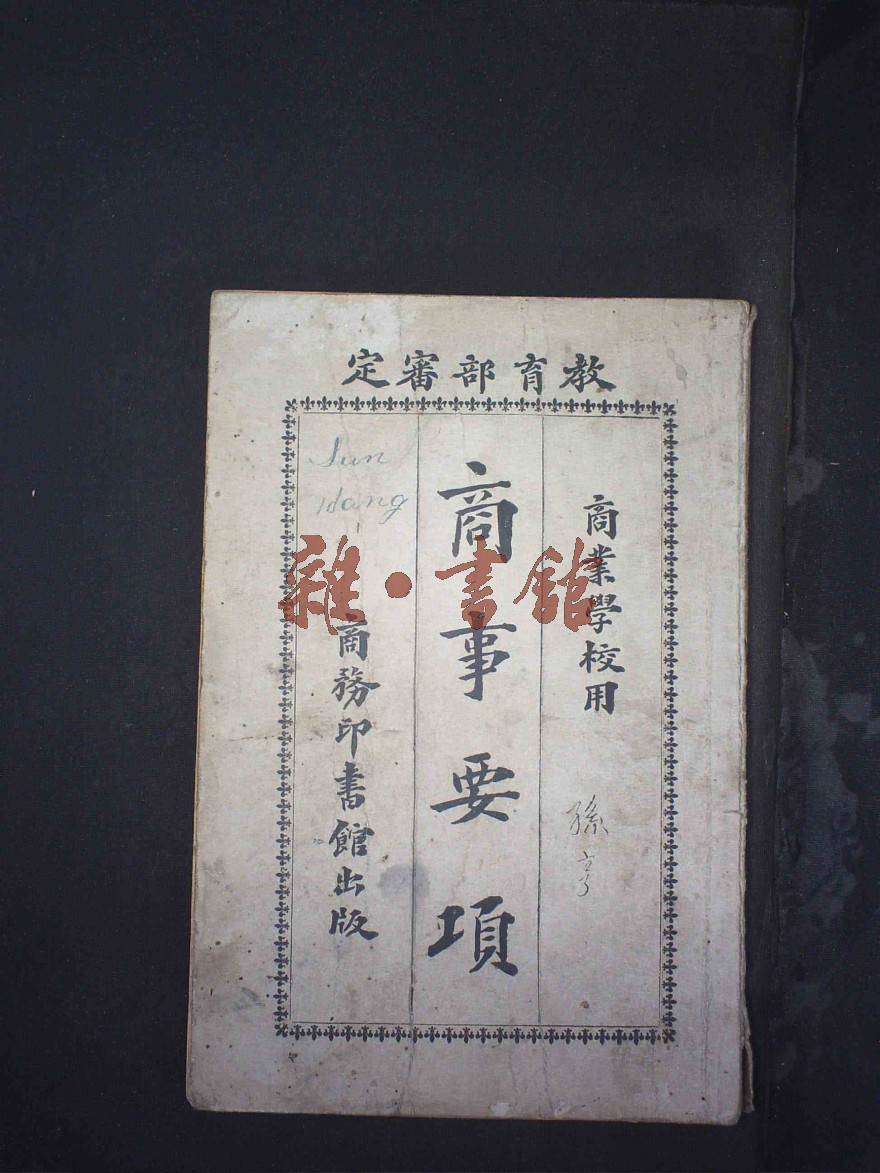 教育部審定
商業學校用
孫亨
商事要項
Sun
Hang
商務印書館出版
雜·書館